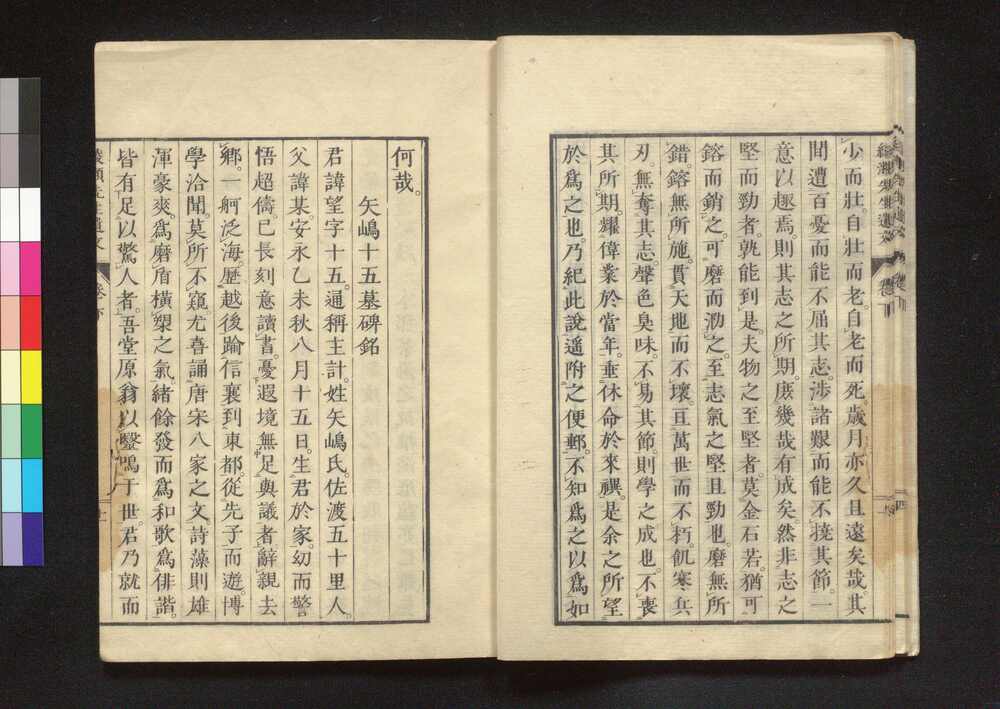 少而壯。自壯而老。自老而死。歲月亦久且遠矣哉。其
間遭百憂而能不屈其志。涉諸艱而能不撓其節。一
意以趣焉。則其志之所期。庶幾哉有成矣。然非志之
堅而勁者。孰能到是。夫物之至堅者。莫金石若。猶可
鎔而銷之。可磨而泐之。至志氣之堅且勁也。磨無所
錯。鎔無所施。貫天地而不壞。亘萬世而不朽。飢寒兵
刃。無奪其志。聲色臭味。不易其節。則學之成也。不喪
其所期。耀偉業於當年。垂休命於來禩。是余之所望
於爲之也。乃紀此說。遥附之便郵。不知爲之以爲如
何哉。
矢嶋十五墓碑銘
君諱望字十五。通稱主計。姓矢嶋氏。佐渡五十里人。
父諱某。安永乙未秋八月十五日。生君於家。幼而警
悟超儔。已長刻意讀書。憂遐境無足與議者。辭親去
鄕。一舸泛海。歷越後踰信襄到東都。從先子而遊。博
學洽聞。莫所不窺。尤喜誦唐宋八家之文。詩藻則雄
渾豪爽。爲磨盾橫槊之氣。緒餘發而爲和歌爲俳諧。
皆有足以驚人者。吾堂原翁以毉鳴于世。君乃就而
先生遺文
卷下